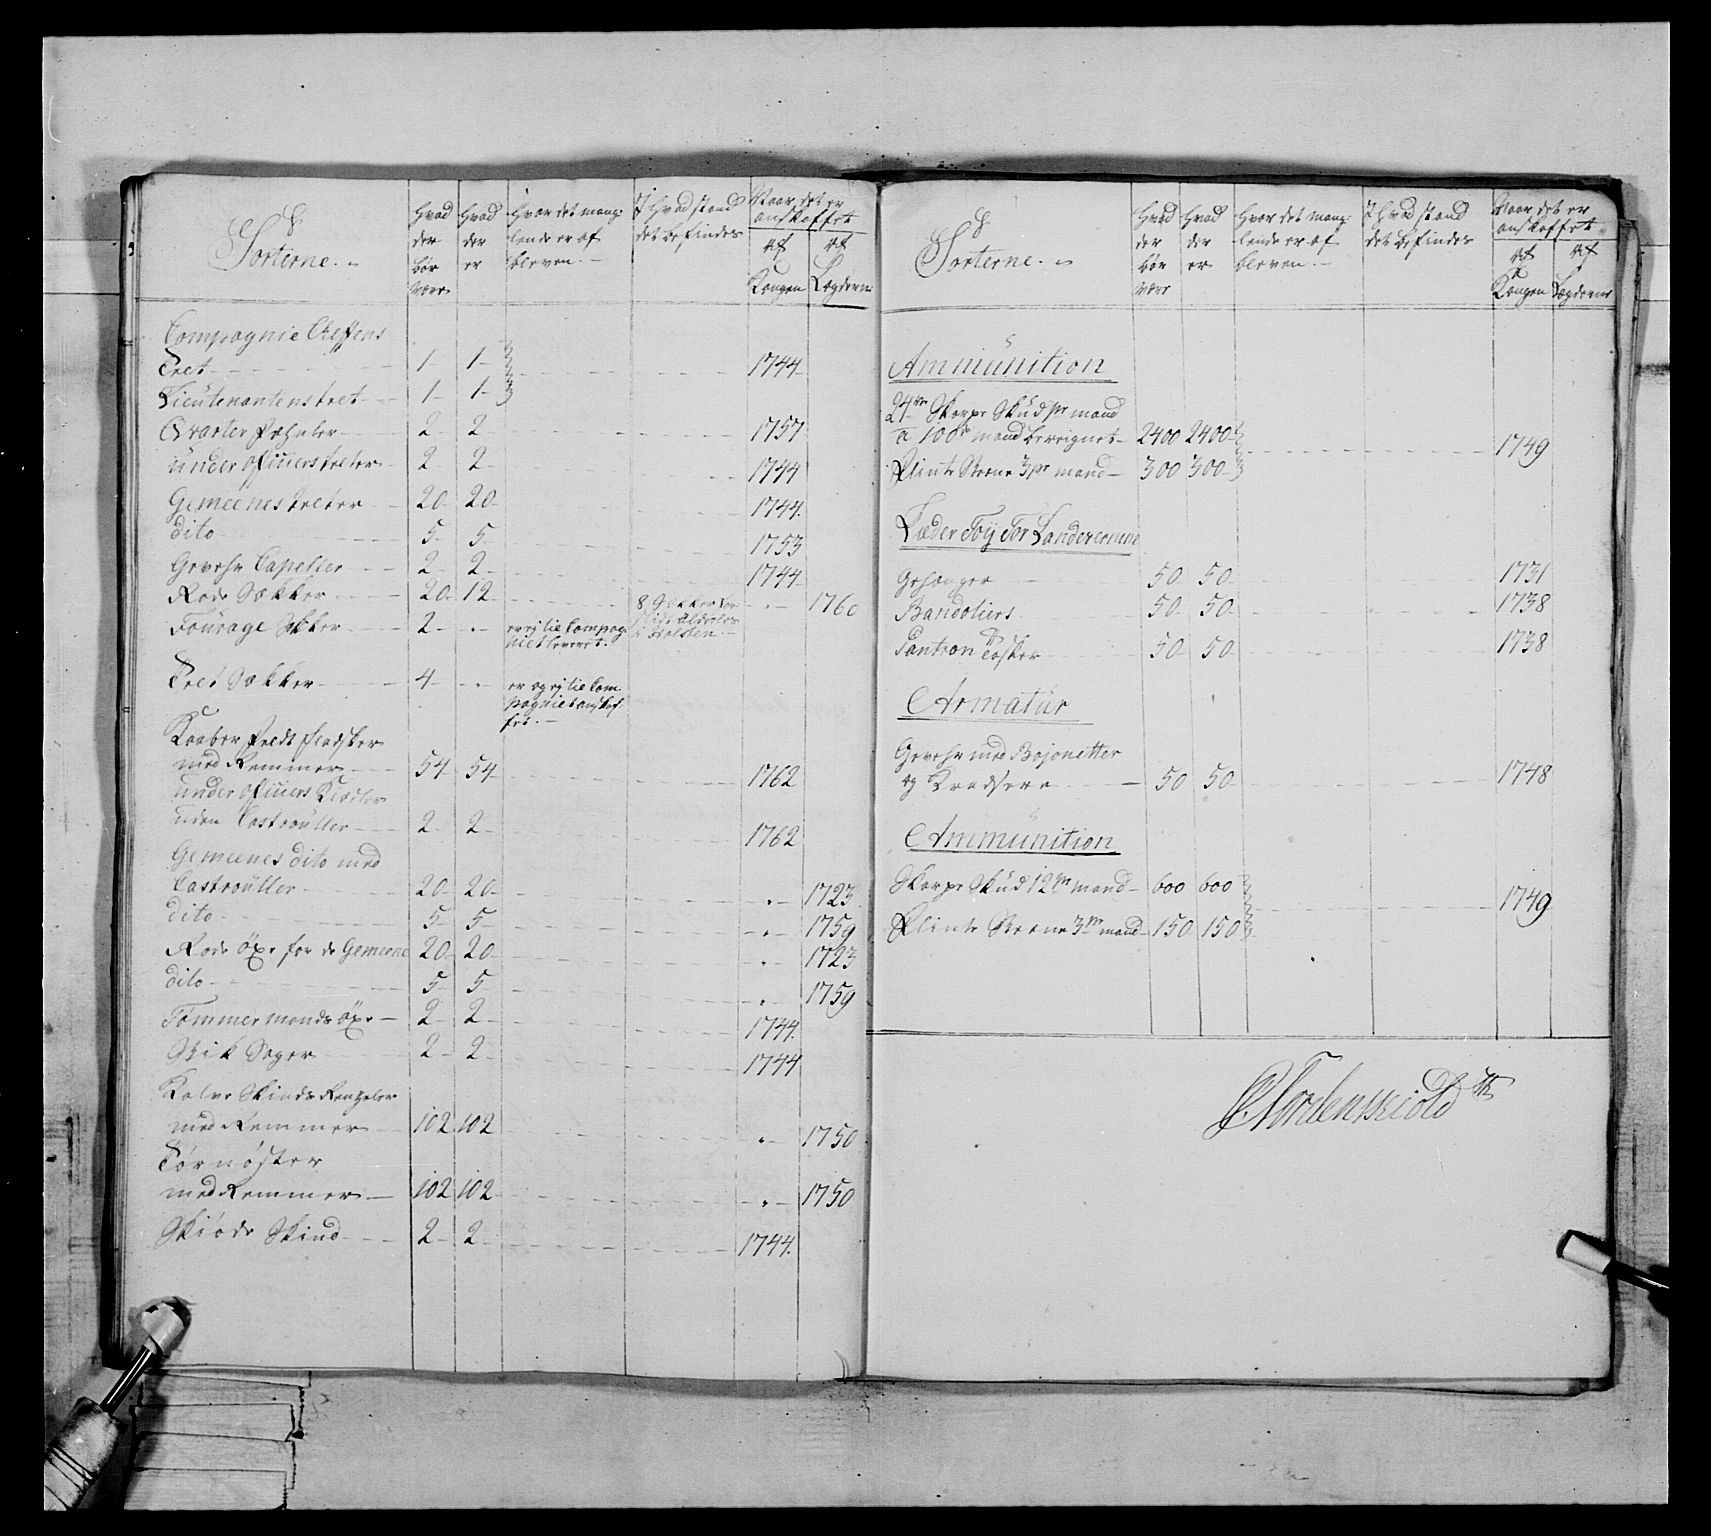 Sorterne.
Hvad der bør være
Hvad der er
Hvor det mang-
lende er af
bleven.
I Hvad stand
det befindes
Naar det er
anskaffet
af Kongen
af Lægderne
Compagnie Cheffens
Telt 1 1
1744
Lieutenantens telt 1 1
Qvarter Fahner 2 2 1757
Under officiers telter 2 2 1744
Gemeenes telter 20 20 1744.
dito 5 5 1753
Gevehr Capeller 2 2 1744
Rode Sækker 20 12 8 Sækker 1760
i Holsten.
Fourage 2 " Compag-
niet leveret.
Telt Sækker 4 " er og ey til Com-
pagniet anskaf-
fet.
Kaaber Feldt fladsker
med Remmer 54 54 1762
Under officiers Kiedler
uden Castroüller 2 2 1762
Gemeenes dito med
Castroüller 20 20 " 1723
dito 5 5 " 1759
Rode öxe for de Gemeene 20 20 " 1723
dito 5 5 " 1759
Tømmermands öxe 2 2 1744.
Stik Sager 2 2 1744
Kalve Skinds Rentzeler
med Remmer 102 102 " 1750
Tørnøster
med Remmer 102 102 " 1750
Skiøds Skind 2 2 1744.
Sorterne.
Hvad der bør være
Hvad der er
Hvor det mang-
lende er af
bleven.
I Hvad stand
det befindes
Naar det er
anskaffet
af Kongen
af Lægderne
Ammünition
24re Skarpe Skud pr mand
a 100de mand beregnet 2400 2400
1749
Flinte Steene 3 pr mand 300 300
Læder Töÿ For Landeværne
Gehænger 50 50 1731
Bandoliers 50 50 1738
Pantron Tasker 50 50 1738
Armatür
Gevehr med Bajonetter
og Kradsere 50 50 1748
Ammünition
Skarpe Skud 12 pr mand 600 600
1749
Flinte Steene 3 pr mand 150 150
Tordenskiold